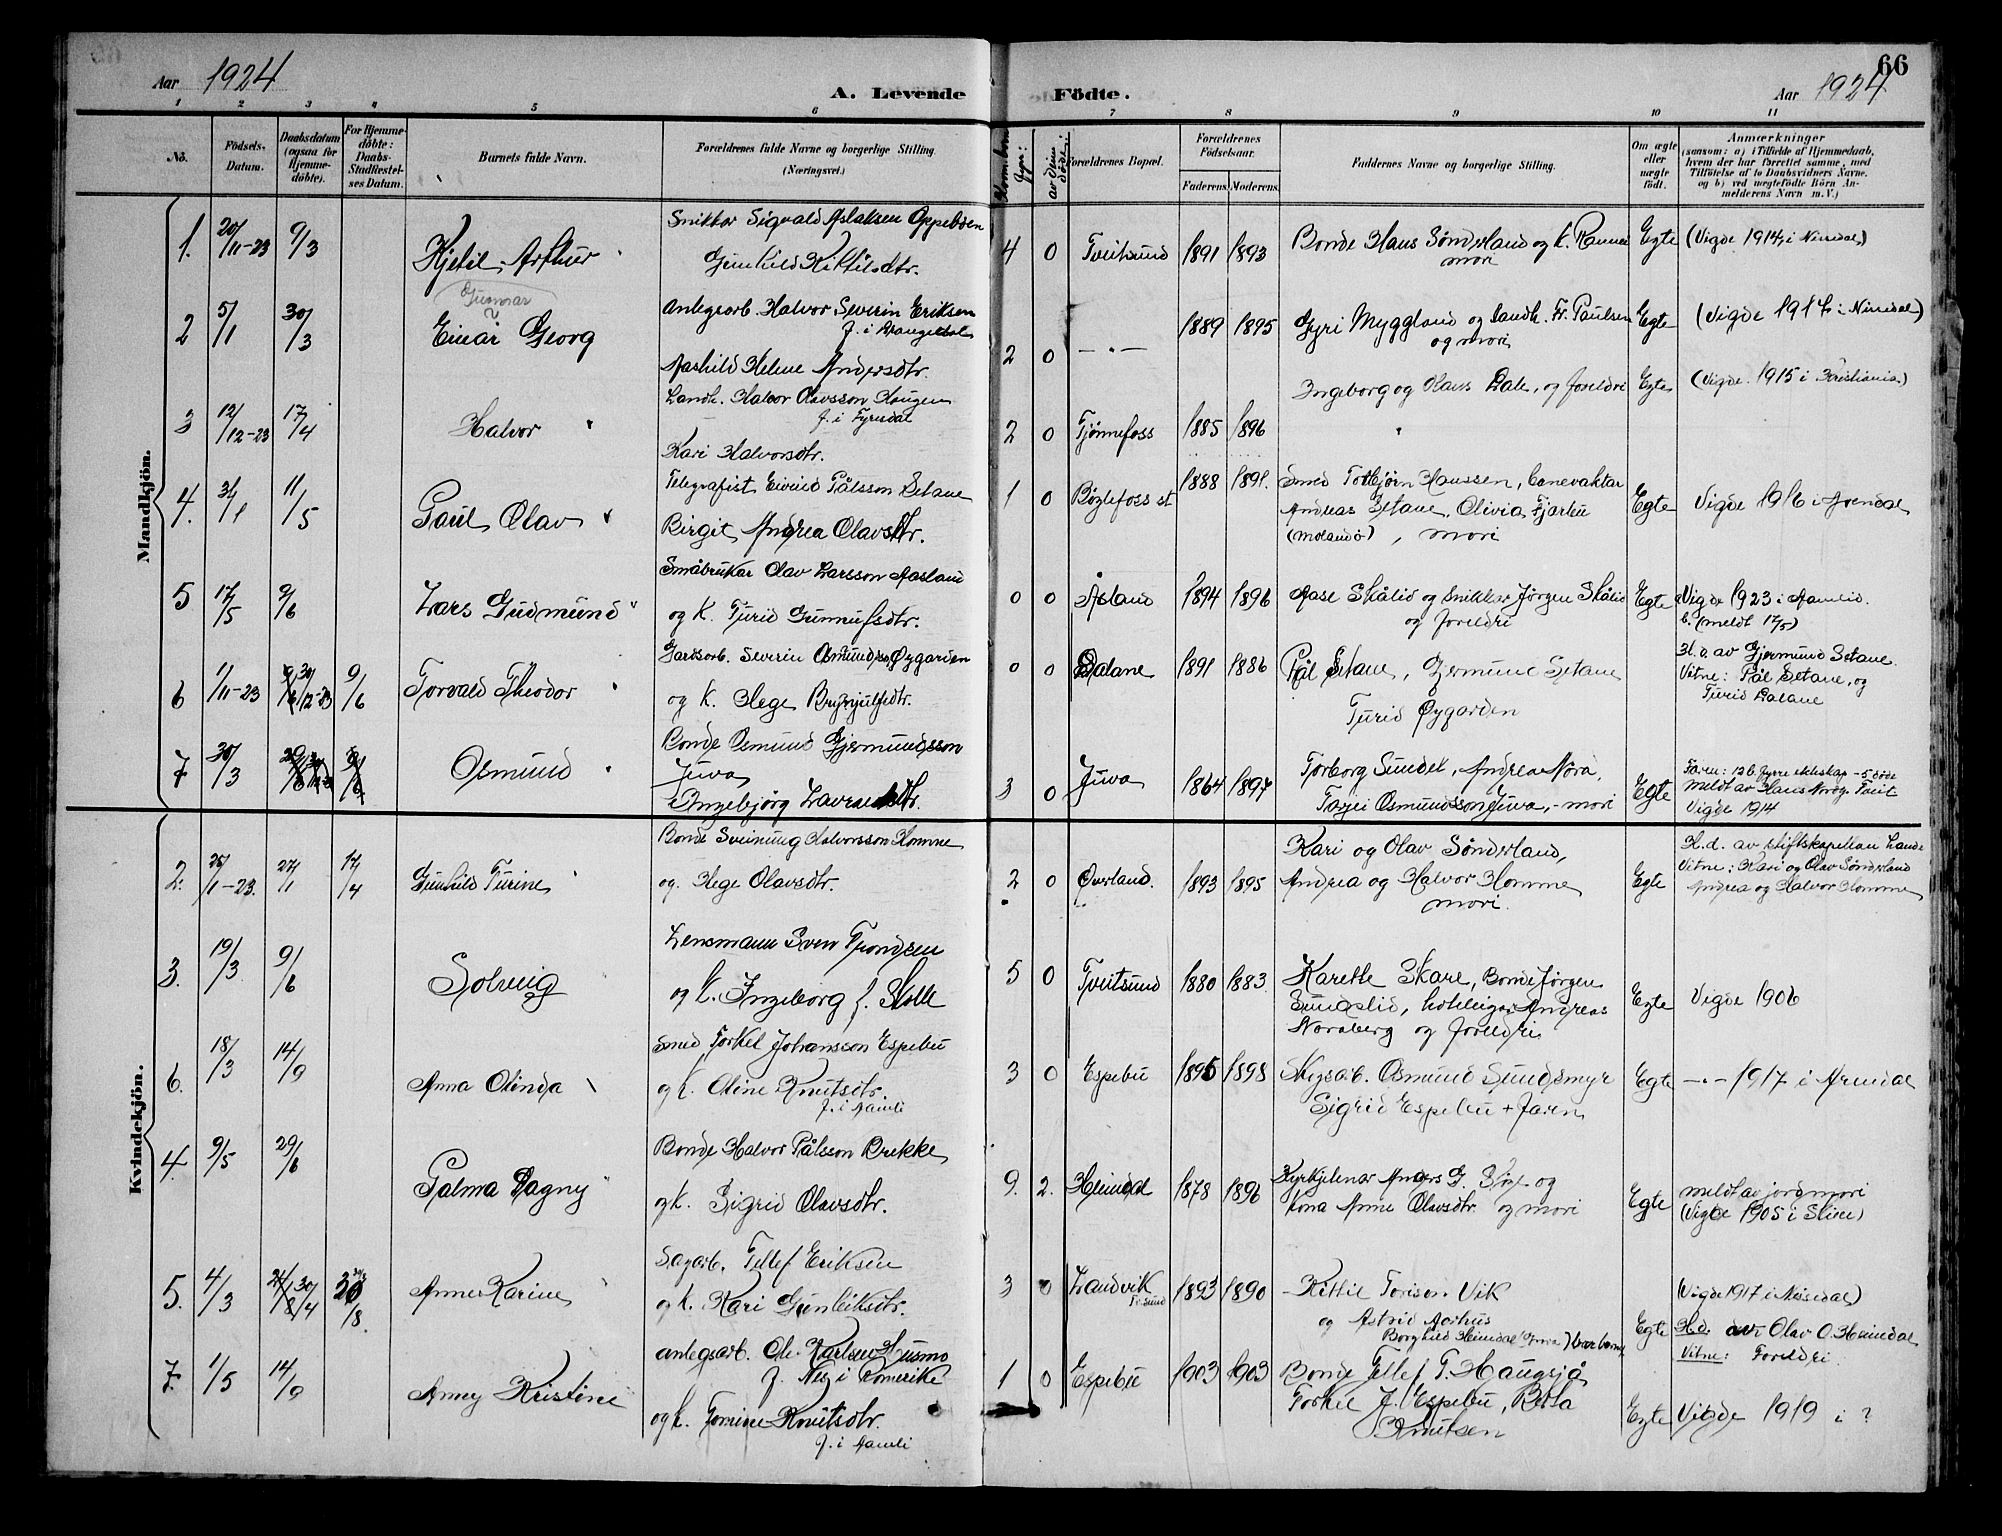 66
Aar 1924
A. Levende Födte.
Aar 1924
1 2 3 4 5 6 7 8 9 10 11
No.
Födsels-Datum.
Daabsdatum (ogsaa for Hjemme-döbte).
For Hjemme-döbte: Daabs-Stadfæstel-ses Datum.
Barnets fulde Navn.
Forældrenes fulde Navne og borgerlige Stilling. (Næringsvei.)
av deim döde:
Forældrenes Bopæl.
Forældrenes Födselsaar.
Faderens. Moderens.
Faddernes Navne og borgerlige Stilling.
Om ægte eller uægte födt.
Anmærkninger
(saasom: a) i Tilfælde af Hjemmedaab,
hvem der har forrettet samme, med
Tilföielse af to Daabsvidners Navne.
og b) ved uegtefödte Börn An-
melderens Navn m. V.)
Mandkjön.
1. 20/11-23 9/3 Kjetil Arthur
Snikkar Sigvald Aslaksen Oppeboen
Gunhild Kittilsdtr.
4 0 Tveitsund 1891 1893
Bonde Hans Sønderland og k. Ranna
mori
Egte (Vigde 1914 i Nissedal)
2 5/1 30/3 Gunnar
Einar Georg
Anlegsarb. Halvor Severin Eriksen
f. i Drangedal
Aashild Helene Andersdtr.
2 0 —„— 1889 1895
Gyri Myggland og Landh. Fr. Paulsen
og mori
Egte (Vigde 1917 i Nissedal)
3 12/12-23 17/4 Halvor
Landh. Halvor Olavsson Haugen
f. i Fyresdal
Kari Halvorsdtr.
2 0 Tjønnefoss 1885 1896
Ingeborg og Hans Dale, og foreldri
Egte (Vigde 1915 i Kristiania)
4. 31/1 11/5 Paul Olav
Telegrafist Eivind Pålsson Setane
Birgit Andrea Olavsdtr.
1 0 Bøylefoss st 1888 1891.
Smed Torbjørn Hanssen, banevaktar
Andreas Setane, Olivia Fjærbu
(Molandö), mori
Egte Vigde 1916 i Arendal
5 17/5 9/6 Lars Gudmund
Småbrukar Olav Larsson Aasland
og k. Turid Gunnufsdtr.
0 0 Åsland 1894 1896
Aase Skålid og snikkar Jørgen Skålid
og foreldri
Egte Vigde 1923 i Aamlid.
b. (meldt 17/5)
6 1/11-23 9/6 30/12-23 9/6 Torvald Theodor
Gardsarb. Severin Osmundsson Øygarden
og k. Hege Brynjulfsdtr.
0 0 Dalane 1891 1886
Pål Setane, Gjermund Setane
Turid Øygarden
H.d. av Gjermund Setane.
Vitne: Pål Setane, og
Turid Dalane
7 30/3 Osmund
Bonde Osmund Gjermundsson
Juva
Ingebjørg Lavrantsdtr.
3 0 Juva 1864 1897
Torborg Sundet, Andrea Nora,
Tarjei Osmundsson Juva, - mori
Egte Faren: 12 b. fyrre ekteskap - 5 døde
meldt av Hans Noreg Tveit
Vigde 1914
Kvindekjön.
2. 25/11-23. 27/1 17/4 Gunhild Turine
Bonde Sveinung Halvorsson Homme
og. Hege Olavsdtr.
2 0 Øverland. 1893 1895
Kari og Olav Sønderland,
Andrea og Halvor Homme
mori.
Egte H.d. av stiftskapellan Lande
Vitne: Kari og Olav Sønderland
Andrea og Halvor Homme
3. 19/3 9/6 Solveig
Lensmann Sven Trondsen
og k. Ingeborg f. Stolle
5 0 Tveitsund 1880 1883
Karette Skare, Bonde Jørgen
Sundslid, hotelleigar Andreas
Noraberg og foreldri
Egte Vigde 1906
6. 18/3 14/9 Anna Olinda
Smed Torkel Johansson Espebu
og k. Oline Knutsdtr.
f. i Aamli
3 0 Espebu 1895 1898
Skogsarb. Osmund Sundsmyr
Sigrid Espebu + faren
Egte —„— 1917 i Arendal
4. 9/5 29/6 Palma Dagny
Bonde Halvor Pålsson Brekke
og k. Sigrid Olavsdtr.
9. 2. Heimdal 1878 1896
Kyrkjetenar Anders G. og
kona Anne Olavsdtr. og mori
Egte meldt av jordmori
(Vigde 1905 i Skien)
5. 4/3 30/4 Anne Karine
Sagarb. Tellef Eriksen
og k. Kari Gunleiksdtr.
3 0 Landvik 1893 1890
Kittil Torison Vik
og Astrid Aarhus
Borghild Heimdal
Egte (Vigde 1917 i Nissedal)
H.d. av Olav O. Heimdal
Vitne: Foreldri.
7. 1/5 14/9 Anny Kristine
Anlegsarb. Ole Karlsen Husmo
f. Nes i Romerike
og k. Tomine Knutsdtr.
f. i Aamli
1 0 Espebu 1903 1903
Bonde Tellef T. Haugsjå
Torkel J. Espebu, Berta
Knutsen
Egte Vigde 1919 i ?